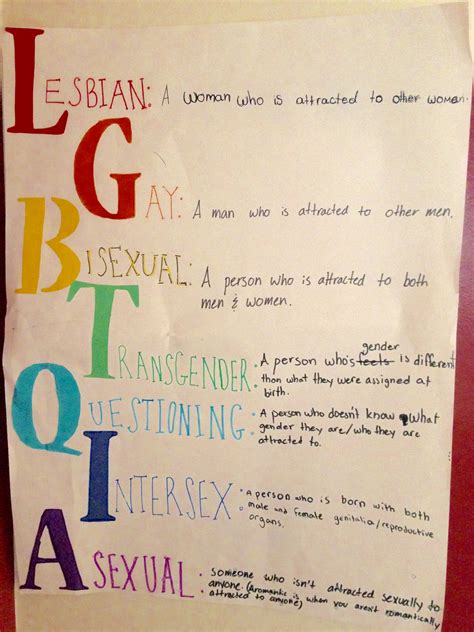 LESBIAN: A WOMAN WHO is attracted to other women.
GAY: A man who is attracted to other men.
BISEXUAL: A person who is attracted to both
men & women.
gender
TRANSGENDER: A person who's feels is different
than what they were assigned at
birth.
QUESTIONING: A person who doesn't know what
gender they are/who they are
attracted to.
INTERSEX: A person who is born with both
male and female genitalia/reproductive
organs.
ASEXUAL: someone who isn't attracted sexually to
anyone. (Aromantic is when you aren't romantically
attracted to anyone)